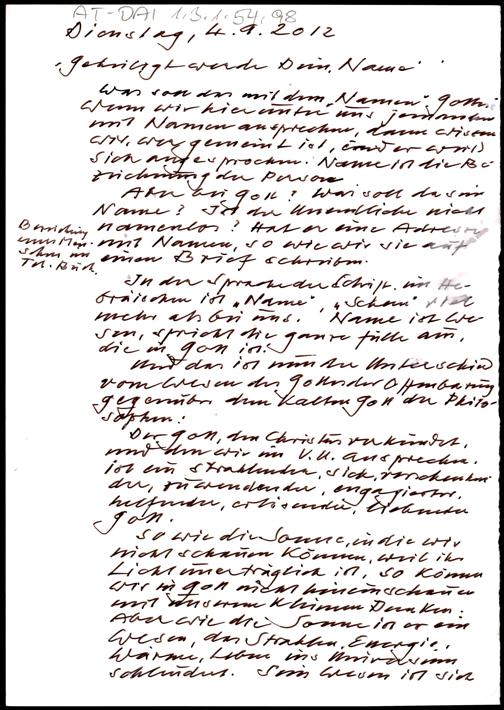 AT-DAI 1.3.1.54.98
Dienstag, 4.9.2012
"Geheiligt werde Dein Name"
Was soll das mit dem "Namen" Gottes
wenn wir hier unter uns jemanden
mit Namen ansprechen, dann wissen
wir, wer gemeint ist, und er weiß
sich angesprochen. Name ist die Be-
zeichnung der Person
Aber bei Gott? Was soll da sein
Name? Ist der Unendliche nicht
namenlos? Hat er eine Adresse
mit Namen, so wie wir sie auf
einen Brief schreiben.
Beziehung
eines Men-
schen im
Tel. Buch
In der Sprache der Schrift im He-
bräischen ist "Name", "Schem" viel
mehr als bei uns. Name ist We-
sen, spricht die ganze Fülle aus,
die in Gott ist.
Und das ist nun der Unterschied
vom Wesen des Gottes der Offenbarung
gegenüber dem kalten Gott der Philo-
sophen:
Der Gott, den Christus verkündet,
und den wir im V.U. ansprechen.
ist ein strahlender, sich verschenken-
der, zuwendender, engagierter,
helfender, erlösender, liebender
Gott.
So wie die Sonne, in die wir
nicht schauen können, weil ihr
Licht unerträglich ist, so können
wir in Gott nicht hineinschauen
mit unserem kleinen Denken.
Aber wie die Sonne ist er ein
Wesen, das Strahlen, Energie,
Wärme, Leben ins Universum
schleudert. Sein Wesen ist sich